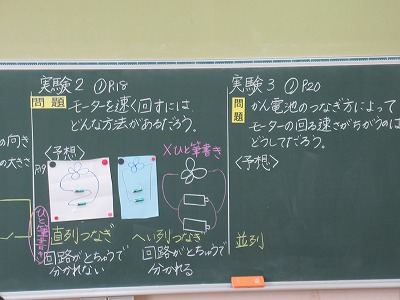 の向き
の大きさ
実験2 ①P18
問題
モーターを速く回すには
どんな方法があるだろう。
<予想>
P19
×ひと筆書き
ひと筆書き
直列つなぎ
回路がとちゅうで
分かれない
へい列つなぎ
回路がとちゅうで
分かれる
実験3 ①P20
問題
かん電池のつなぎ方によって
モーターの回る速さがちがうのは
どうしてだろう。
<予想>
並列